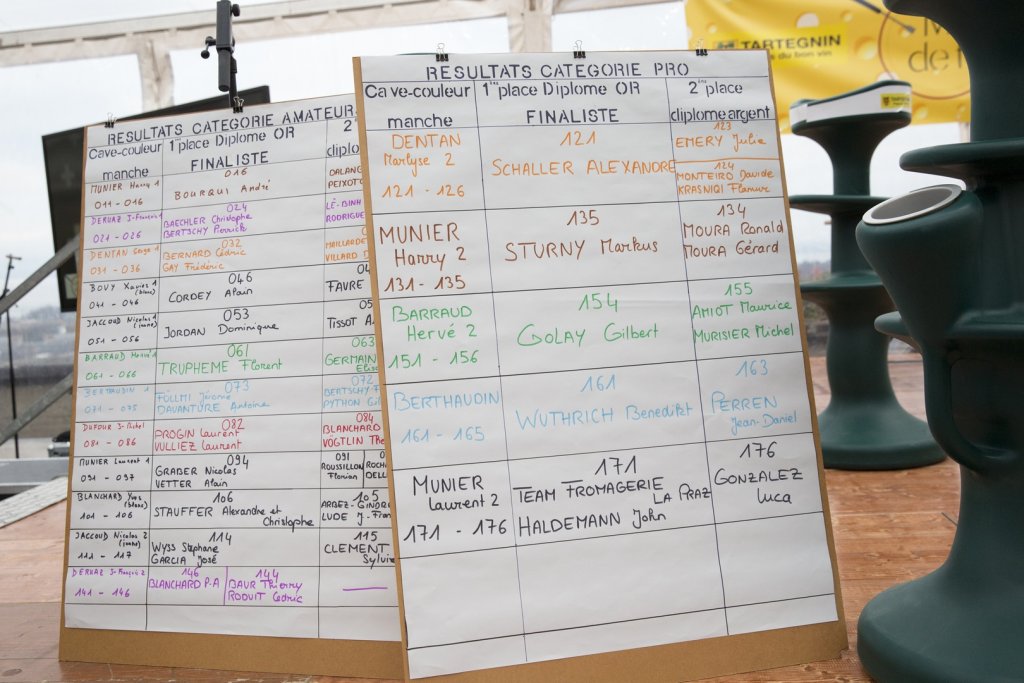 TARTEGNIN
du bon vin
RESULTATS CATEGORIE AMATEUR
Cave-couleur 1 place Diplome OR 2
manche FINALISTE diplo
MUNIER Harry 1
011 - 016
016
BOURQUI André
DALANG
PEIXOTO
DERUAZ J-François 1
021 - 026
024
BAECHLER Christophe
BERTSCHY Pierrick
LÊ-BINH
RODRIGUE
DENTAN Serge 1
031 - 036
032
BERNARD Cédric
GAY Frédéric
MAILLARD
VILLARD D
BOVY Xavier 1
(blanc)
041 - 046
046
CORDEY Alain
04
FAVRE
JACCOUD Nicolas 1
051 - 056
053
JORDAN Dominique
05
TISSOT A
BARRAUD Hervé 1
061 - 066
061
TRUPHEME Florent
063
GERMAIN
BERTHAUDIN 1
071 - 075
073
FÜLLMI Jérome
DAVANTURE Antoine
072
BERTSCHY
PYTHON Gil
DUFOUR J-Michel
081 - 086
082
PROGIN Laurent
VULLIEZ Laurent
084
BLANCHARD
VÖGTLIN The
MUNIER Laurent 1
091 - 097
094
GRABER Nicolas
VETTER Alain
091
ROUSSILLON
Florian
09
ROCHA
DELL
BLANCHARD Yves
(blanc)
101 - 106
106
STAUFFER Alexandre et
Christophe
105
ARBEZ-GINDRE
LUDE J-Fran
JACCOUD Nicolas 2
111 - 117
114
WYSS Stéphane
GARCIA José
115
CLEMENT
Sylvie
DERUAZ J-François 2
141 - 146
146
BLANCHARD P-A
144
BAUR Thierry
RODUIT Cédric
RESULTATS CATEGORIE PRO
Cave-couleur 1ère place Diplome OR 2ème place
manche FINALISTE diplome argent
DENTAN
Marlyse 2
121 - 126
121
SCHALLER ALEXANDRE
123
EMERY Julie
124
MONTEIRO Davide
KRASNIQI Flamur
MUNIER
Harry 2
131 - 135
135
STURNY Markus
134
MOURA Ronald
MOURA Gérard
BARRAUD
Hervé 2
151 - 156
154
GOLAY Gilbert
155
AMIOT Maurice
MURISIER Michel
BERTHAUDIN
161 - 165
161
WUTHRICH Benedikt
163
PERREN
Jean-Daniel
MUNIER
Laurent 2
171 - 176
171
TEAM FROMAGERIE
LA PRAZ
HALDEMANN John
176
GONZALEZ
Luca